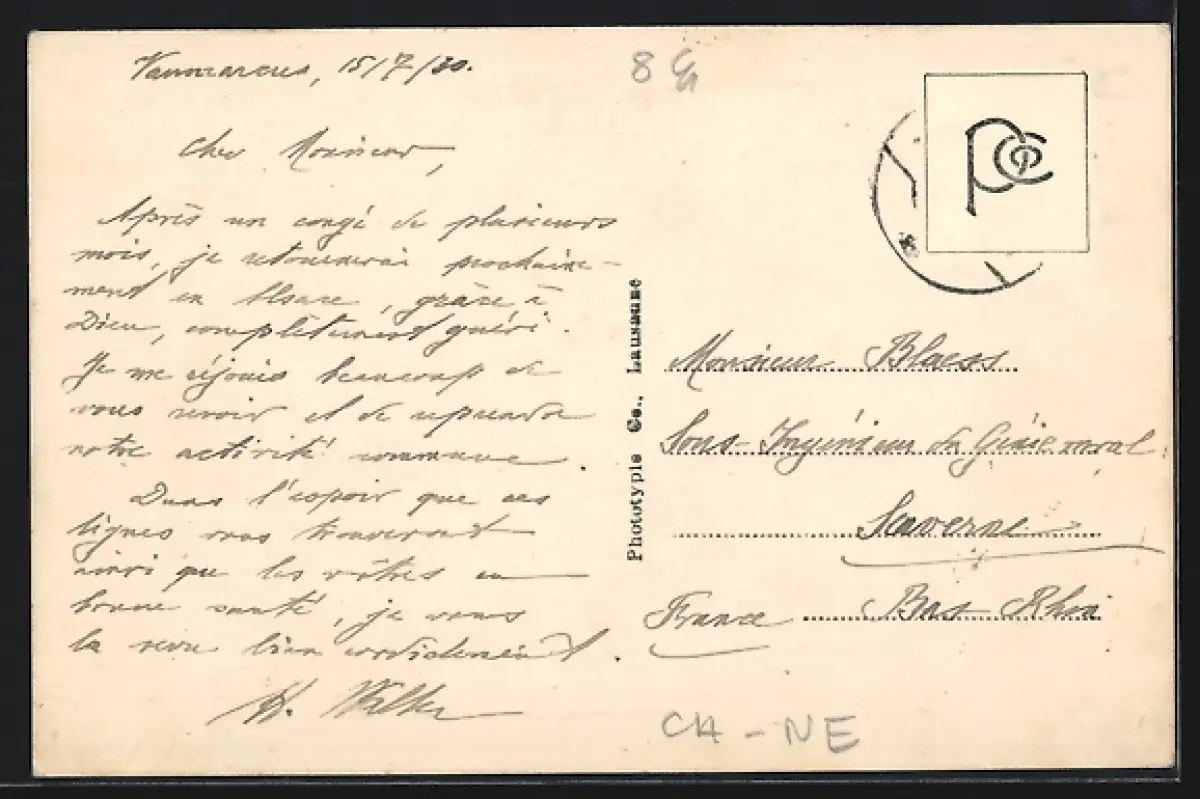 Vaumarcus, 15/7/30.
Cher Monsieur,
Après un congé de plusieurs
mois, je retournerai prochaine-
ment en Alsace, grâce à
Dieu, complètement guéri.
Je me réjouis beaucoup de
vous revoir et de reprendre
notre activité commune.
Dans l'espoir que ces
lignes vous trouveront
ainsi que les vôtres en
bonne santé, je vous
la serre bien cordialement.
H.
Phototypie Co., Lausanne
8
PCo
Monsieur Blaess
Sous-Ingénieur du Génie rural
Saverne
France Bas-Rhin
CH - NE